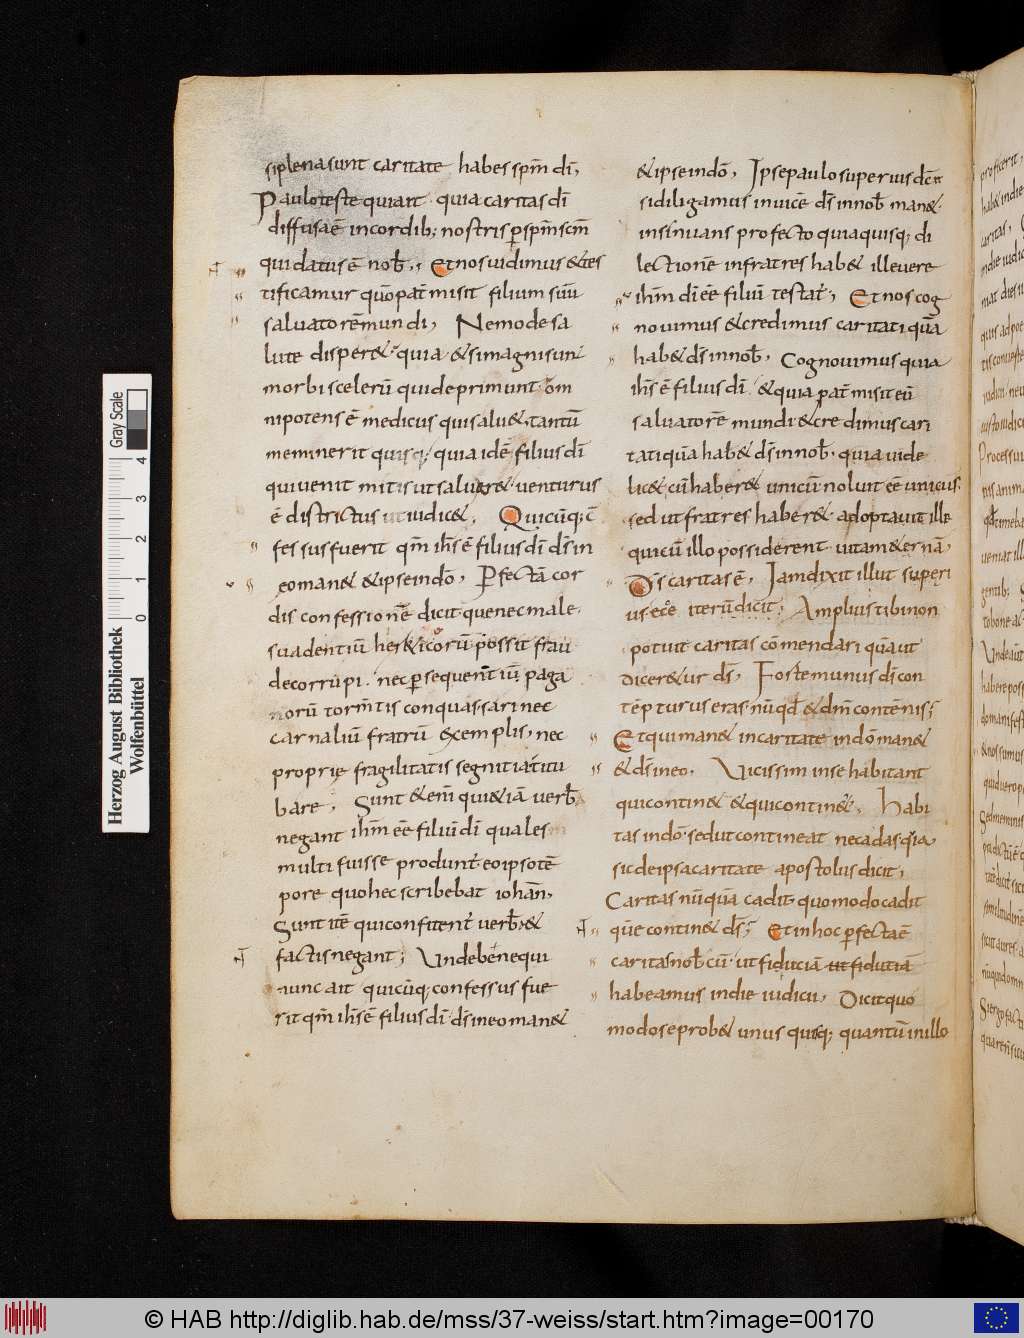 siplena sunt caritate habes spm̄ dī,
Paulo teste qui ait quia caritas dī
diffusa ē in cordib; nostris p̲ spm̄ scm̄
qui datus ē nob̄., Et nos uidimus & tes
tificamur quō pat̄ misit filium suū
saluatorē mundi, Nemo de sa
lute disper& quia &si magni sunt
morbi scelerū qui deprimunt om
nipotens ē medicus qui salu&, tantū
meminerit quisq; quia idē filius dī
qui uenit mitis ut saluar& uenturus
ē districtus ut iudic&. Quicūq; c̄
fessus fuerit qm̄ ih̄s ē filius dī ds̄ in
eo man& & ipse in dō, P̲fectā cor
dis confessionē dicit quę nec male
suadentiū hereticorū possit frau
de corrūpi. nec p̲sequentiū paga
norū torm̄tis conquassari nec
carnaliū fratrū exemplis, nec
proprię fragilitatis segnitia titu
bare, Sunt &enī qui &iā uerb̄
negant ih̄m ēē filiū dī quales
multi fuisse produnt̄ eo ipso tē
pore quo hec scribebat iohan̄,
Sunt itē qui confitent̄ uerb̄, &
factis negant; Unde bene qui
nunc ait quicūq; confessus fue
rit qm̄ ih̄s ē filius dī ds̄ in eo man&
& ipse in dō, Ipse paulo superius dc̄
si diligamus inuicē ds̄ in nob̄ man&
insinuans profecto quia quisq; di
lectionē in fratres hab& ille uere
ih̄m dī ēē filiū testat̄, Et nos cog
nouimus & credimus caritati quā
hab& ds̄ in nob̄, Cognouimus quia
ih̄s ē filius dī & quia pat̄ misit eū
saluatorē mundi & credimus cari
tati quā hab& ds̄ in nob̄, quia uide
lic& cū haber& unicū noluit ēē unicus,
sed ut fratres haber& adoptauit ille
qui cū illo possiderent uitam &ernā,
Ds̄ caritas ē, Iam dixit illut superi
us ecce iterū dicit, Amplius tibi non
potuit caritas cōmendari quā ut
dicer&ur ds̄, Forte munus dī con
tēpturus eras nūqd̄ & dm̄ contēnis;
Et qui man& in caritate in dō man&
& ds̄ in eo, Vicissim in se habitant
qui contin& & qui contin&, Habi
tas in dō sed ut contineat ne cadas quia
sic de ipsa caritate apostolus dicit,
Caritas nūquā cadit, quomodo cadit
quē contin& ds̄; Et in hoc p̲fecta ē
caritas nob̄ cū ut fiduciā ut fidutiā
habeamus in die iudicii, Dicit quo
modo se prob& unus quisq; quantū in illo
Herzog August Bibliothek
Wolfenbüttel
Gray Scale
0 1 2 3 4
© HAB http://diglib.hab.de/mss/37-weiss/start.htm?image=00170